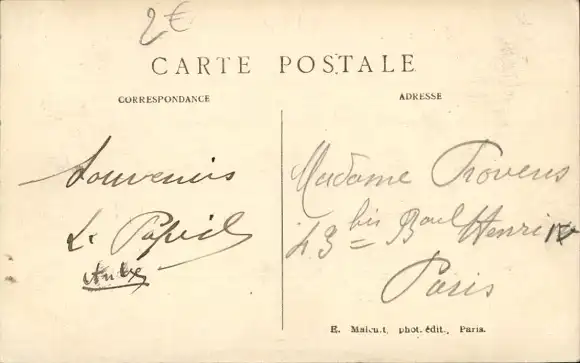 2€
CARTE POSTALE
CORRESPONDANCE
ADRESSE
Souvenirs
Aube
Madame Provens
43 bis Boul Henri IV
Paris
E. Malcuit, phot. édit., Paris.